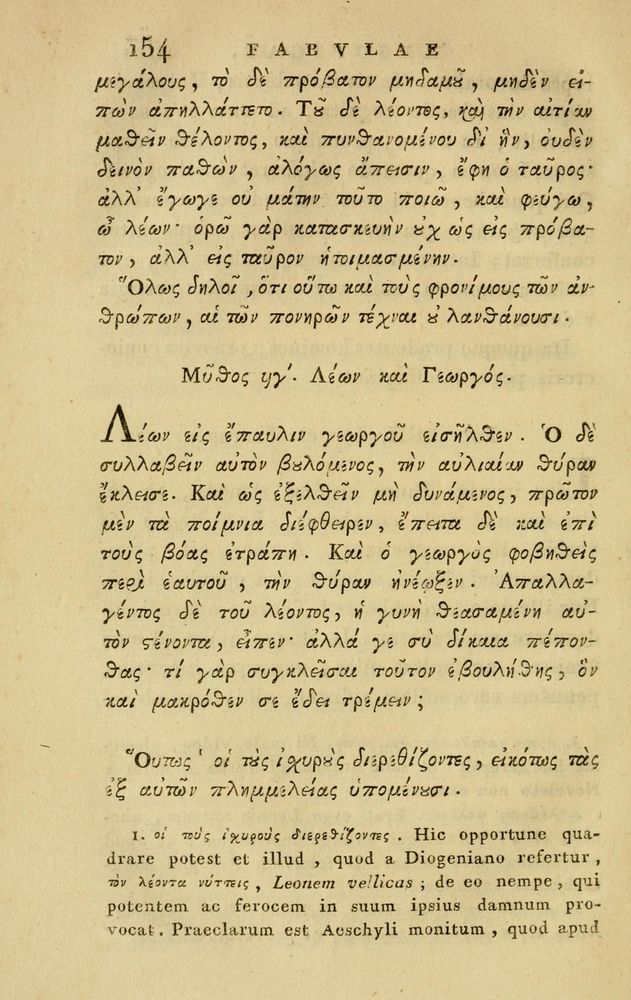 154 FABVLAE
μεγάλους, τὸ δὲ πρόβατον μηδαμοῦ, μηδὲν εἰ-
πὼν ἀπηλλάττετο. Τοῦ δὲ λέοντος, καὶ τὴν αἰτίαν
μαθεῖν θέλοντος, καὶ πυνθανομένου δι ἣν, οὐδὲν
δεινὸν παθὼν, ἀλόγως ἄπεισιν, ἔφη ὁ ταῦρος·
ἀλλ' ἔγωγε οὐ μάτην τοῦτο ποιῶ, καὶ φεύγω,
ὦ λέων· ὁρῶ γὰρ κατασκευὴν οὐχ ὡς εἰς πρόβα-
τον, ἀλλ' εἰς ταῦρον ἡτοιμασμένην.
Ὅλως δηλοῖ, ὅτι οὕτω καὶ τοὺς φρονίμους τῶν ἀν-
θρώπων, αἱ τῶν πονηρῶν τέχναι οὐ λανθάνουσι.
Μῦθος ηγ'. Λέων καὶ Γεωργός.
Λέων εἰς ἔπαυλιν γεωργοῦ εἰσῆλθεν. Ὁ δὲ
συλλαβεῖν αὐτὸν βουλόμενος, τὴν αὐλιαίαν θύραν
ἔκλεισε. Καὶ ὡς ἐξελθεῖν μὴ δυνάμενος, πρῶτον
μὲν τὰ ποίμνια διέφθειρεν, ἔπειτα δὲ καὶ ἐπὶ
τοὺς βόας ἐτράπη. Καὶ ὁ γεωργὸς φοβηθεὶς
περὶ ἑαυτοῦ, τὴν θύραν ἠνέωξεν. Ἀπαλλα-
γέντος δὲ τοῦ λέοντος, ἡ γυνὴ θεασαμένη αὐ-
τὸν στένοντα, εἶπεν· ἀλλά γε σὺ δίκαια πέπον-
θας· τί γὰρ συγκλεῖσαι τοῦτον ἐβουλήθης, ὃν
καὶ μακρόθεν σε ἔδει τρέμειν;
Οὕτως ¹ οἱ τοὺς ἰσχυροὺς διερεθίζοντες, εἰκότως τὰς
ἐξ αὐτῶν πλημμελείας ὑπομένουσι.
1. οἱ τοὺς ἰσχυροὺς διερεθίζοντες. Hic opportune qua-
drare potest et illud, quod a Diogeniano refertur,
τὸν λέοντα νύττεις, Leonem vellicas; de eo nempe, qui
potentem ac ferocem in suum ipsius damnum pro-
vocat. Praeclarum est Aeschyli monitum, quod apud